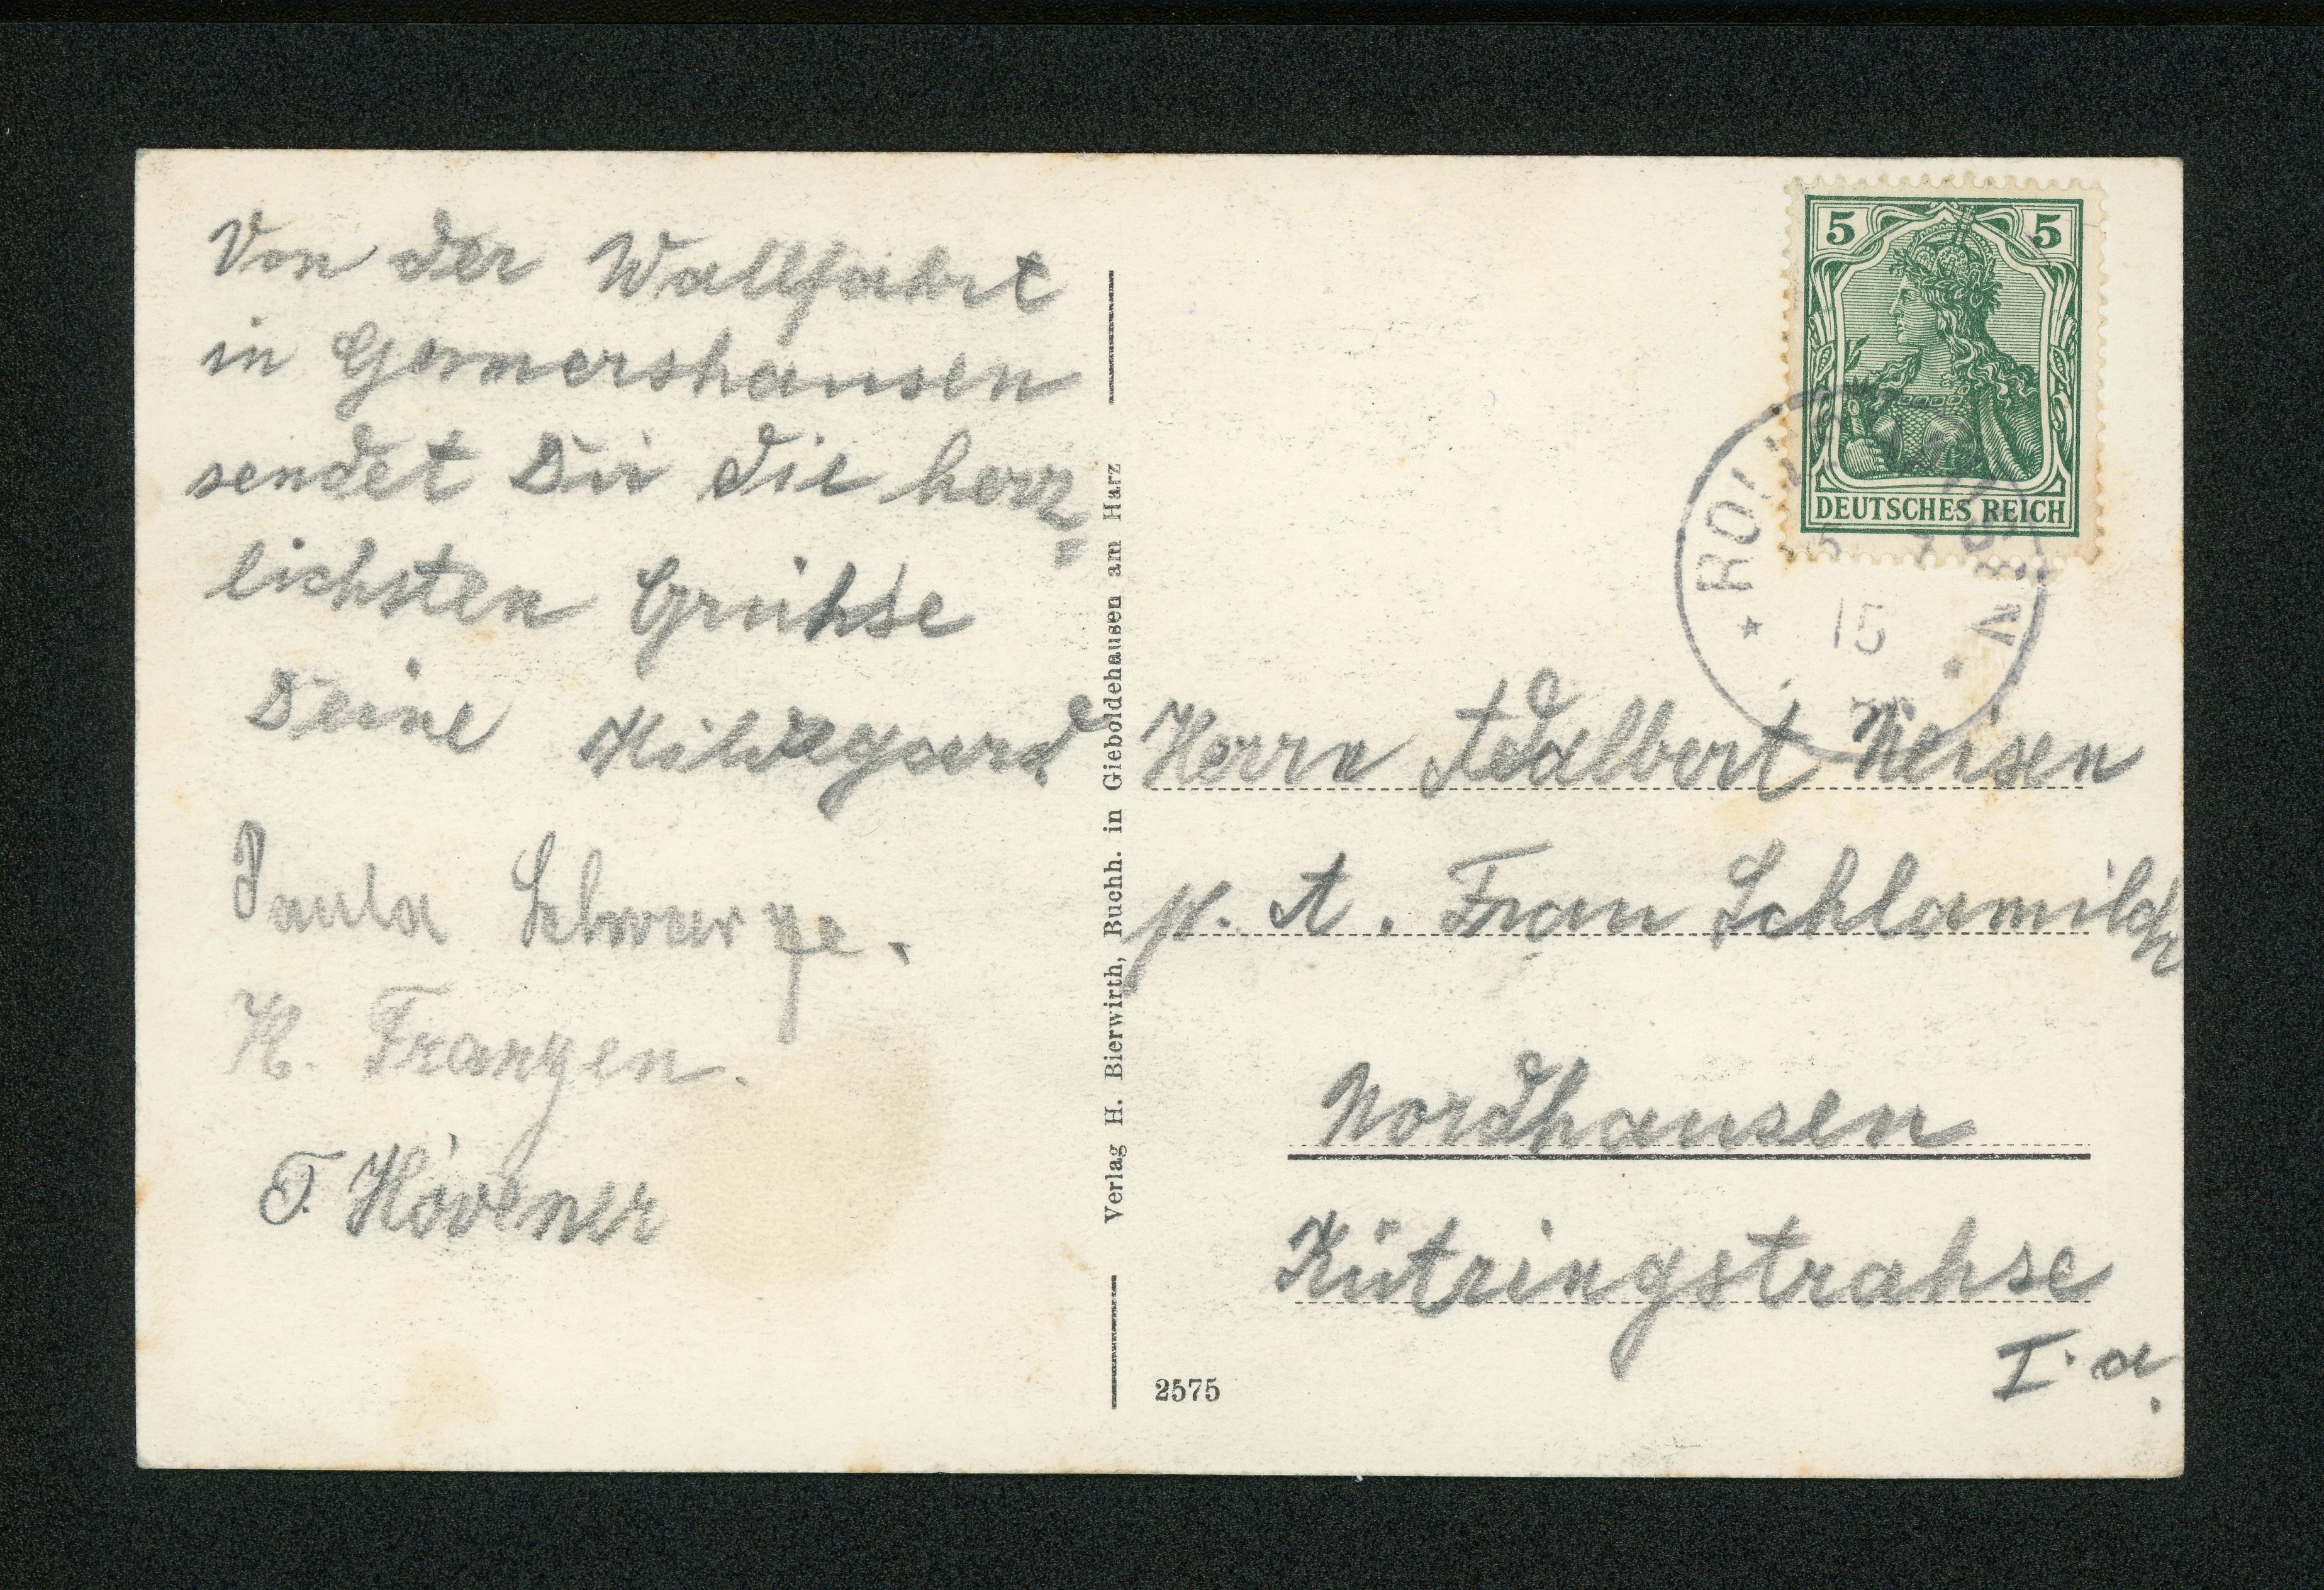 Von der Wallfahrt
in Germershausen
sendet Dir die herz=
lichsten Grühse
Deine Hildegard
Paula Schwarze.
H. Franzen.
T. Hövener
Verlag H. Bierwirth, Buchh. in Gieboldehausen am Harz
5 5
DEUTSCHES REICH
15
Herrn Adalbert Neisen
p. A. Frau Schlamilch
Nordhausen
Kütringstrahse
I. a.
2575